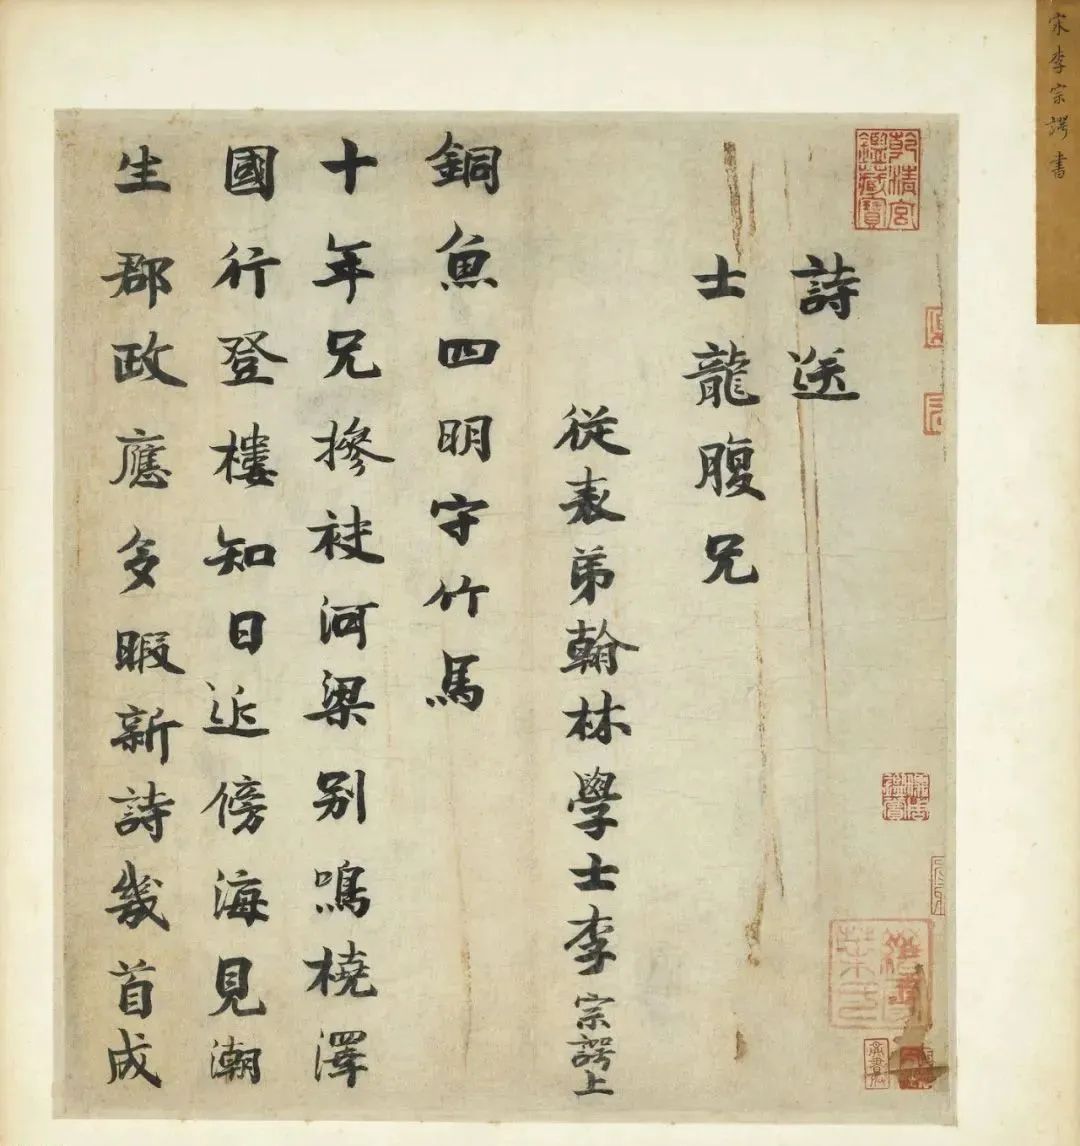 宋李宗諤書
乾清宮鑑藏寶
詩送
士龍腹兄
從表弟翰林學士李宗諤上
銅魚四明守竹馬
十年兄摻袂河梁别鳴橈澤
國行登樓知日近傍海見潮
生郡政應多暇新詩幾首成